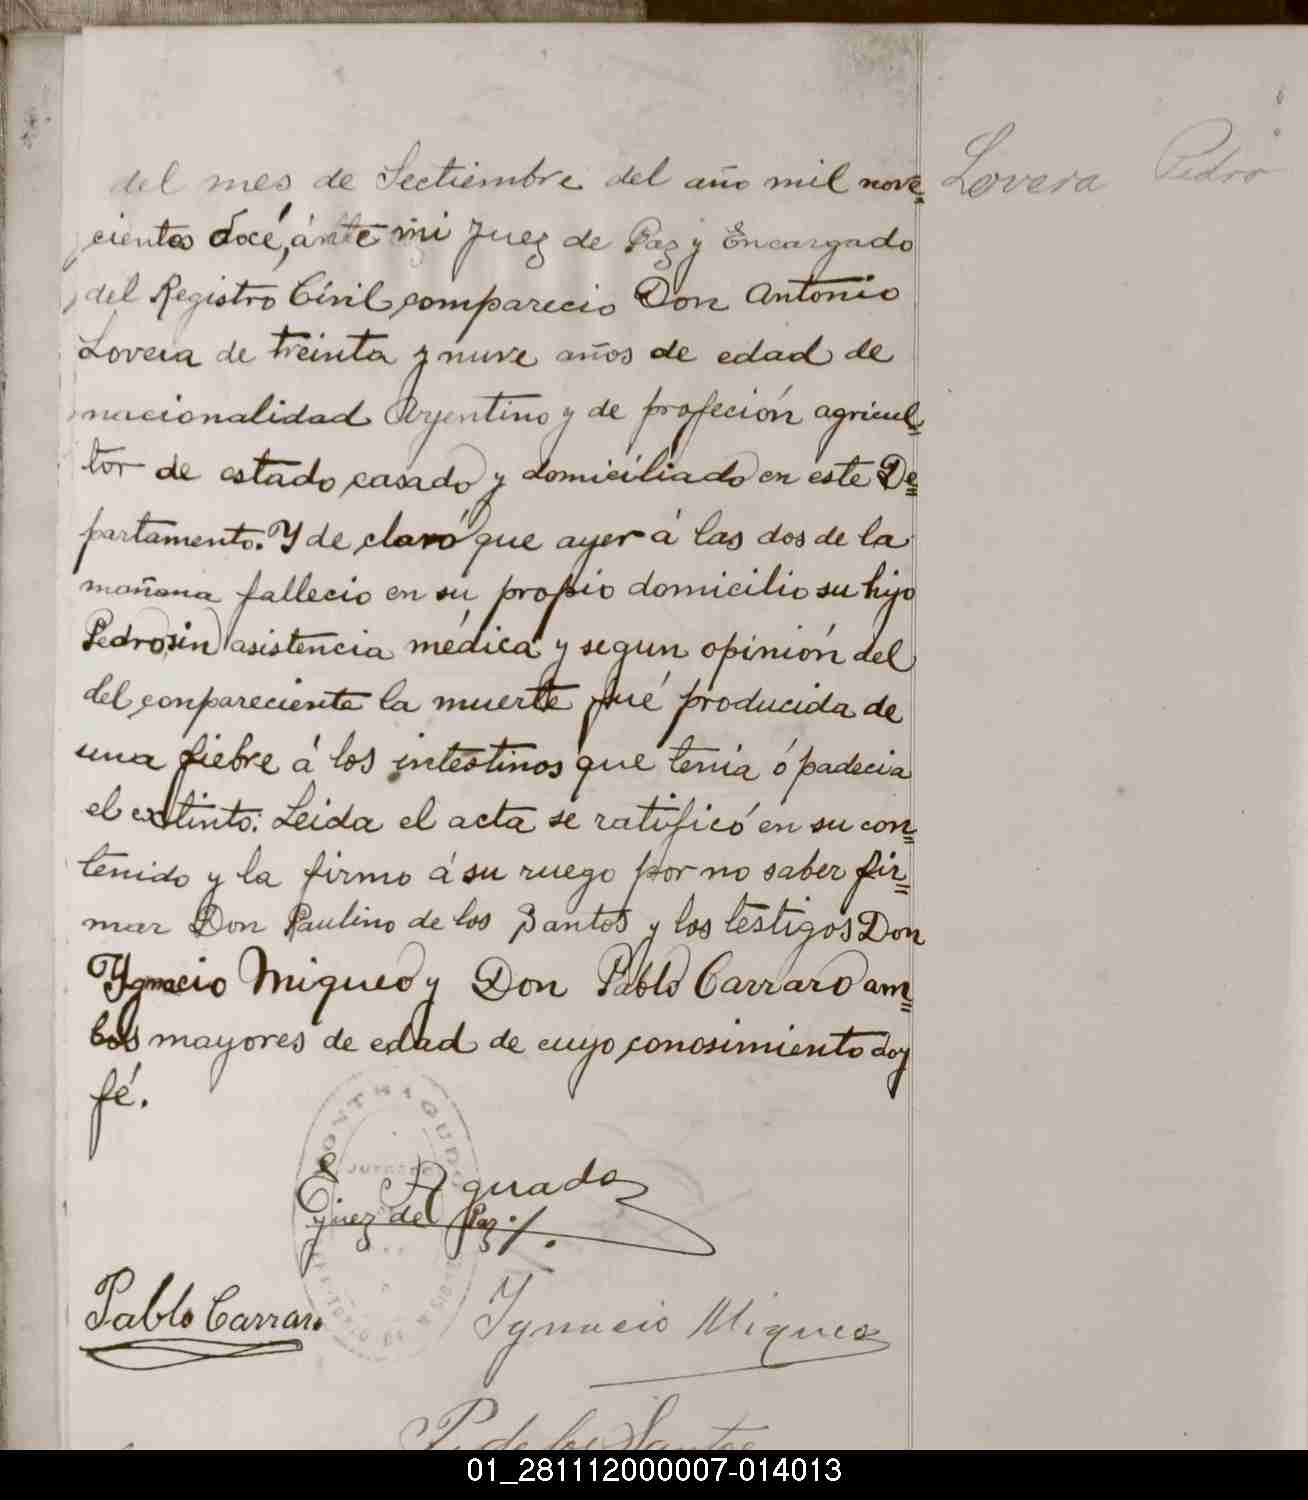 Lovera Pedro
del mes de Sectiembre del año mil nove=
cientos docé, ánte mi Juez de Paz y Encargado
del Registro Civil comparecio Don Antonio
Lovera de treinta y nuve años de edad de
nacionalidad Argentino y de profeción agricul=
tor de estado casado y domiciliado en este De=
partamento. Y de claró que ayer á las dos de la
mañana fallecio en su propio domicilio su hijo
Pedro sin asistencia médica y segun opinión del
del conpareciente la muerte fué producida de
una fiebre á los intestinos que tenia ó padecia
el extinto. Leida el acta se ratificó en su con=
tenido y la firmo á su ruego por no saber fir=
mar Don Paulino de los Santos y los testigos Don
Ygnacio Migueo y Don Pablo Carraro am=
bos mayores de edad de cuyo conosimiento doy
fé.
E Aguado
Juez de Paz
Pablo Carraro
Ygnacio Migueo
P. de los Santos
01_281112000007-014013